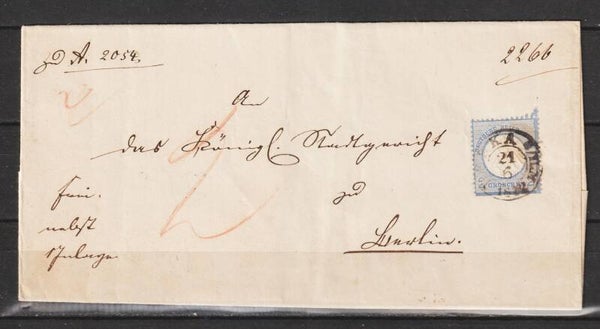 zu A. 2054.
2266
An
das Königl. Stadtgericht
zu
Berlin.
frei.
nebst
Anlage
2
KA
21
6
GROSCHEN